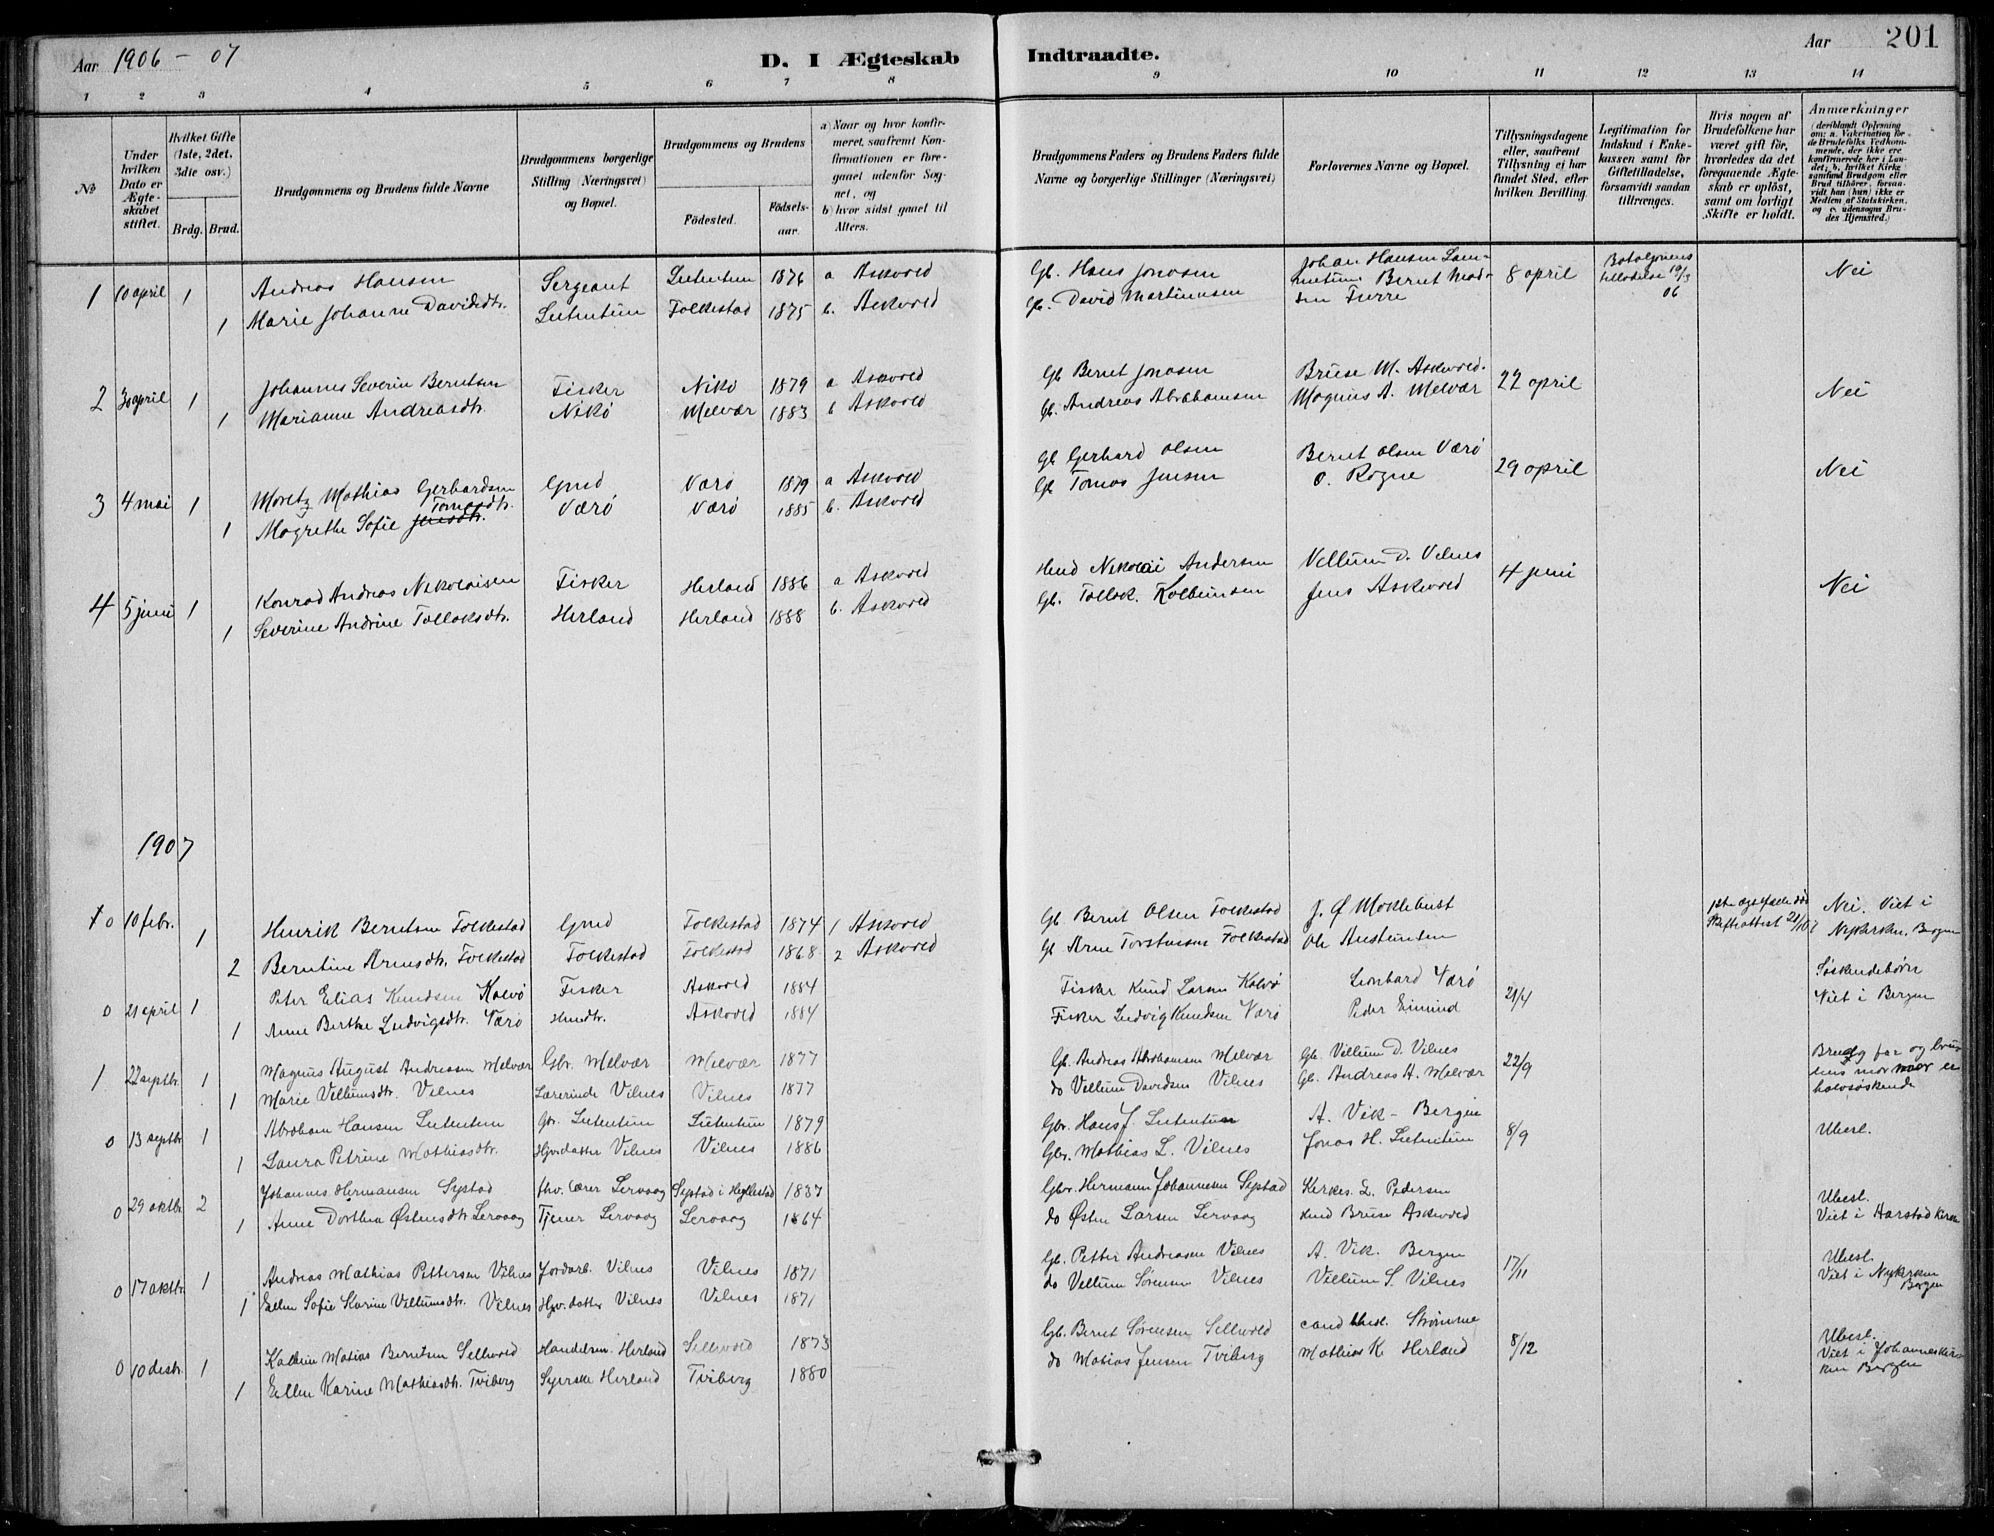 Aar 1906 - 07
D. I Ægteskab
Indtraadte.
Aar
201
1 2 3 4 5 6 7 8 9 10 11 12 13 14
No
Under hvilken Dato er Ægteskabet stiftet.
Hvilket Gifte (1ste, 2det, 3die osv.)
Brdg. Brud.
Brudgommens og Brudens fulde Navne
Brudgommens borgerlige Stilling (Næringsvei) og Bopæl.
Brudgommens og Brudens
Fødested.
Fødselsaar.
a) Naar og hvor konfirmeret, saafremt Konfirmationen er foregaaet udenfor Sognet, og
b) hvor sidst gaaet til Alters.
Brudgommens Faders og Brudens Faders fulde Navne og borgerlige Stillinger (Næringsvei)
Forlovernes Navne og Bopæl.
Tillysningsdagene eller, saafremt Tillysning ei har fundet Sted, efter hvilken Bevilling.
Legitimation for Indskud i Enkekassen samt for Giftetilladelse, forsaavidt saadan tiltrænges.
Hvis nogen af Brudefolkene har været gift før, hvorledes da det foregaaende Ægteskab er opløst, samt om lovligt Skifte er holdt.
Anmærkninger (deriblandt Oplysning om: a. Vakcination for de Brudefolks Vedkommende, der ikke ere konfirmerede her i Landet; b. hvilket Kirkesamfund Brudgom eller Brud tilhører, forsaavidt han (hun) ikke er Medlem af Statskirken, og c. udensogns Brudes Hjemsted.)
1 10 april 1 Andreas Hansen Sergeant Lutentun 1876 a Askvold Gb. Hans Jonasen Johan Hansen 8 april Bataljonens tilladelse 19/3 06 Nei
1 Marie Johanne Davidsdtr. Lutentun Folkestad 1875 b. Askvold Gb. David Martinusen Bernt Madsen Furre
2 30 april 1 Johannes Severin Berntsen Fisker Nikø 1879 a Askvold Gb Bernt Jonasen Bruse M. Askvold. 22 april Nei
1 Marianne Andreasdtr. Nikø Melvær 1883 b Askvold Gb. Andreas Abrahamsen Magnus A. Melvær
3 4 mai 1 Moretz Mathias Gerhardsen Gmd Værø 1879 a Askvold Gb Gerhard Olsen Bernt Olsen Værø 29 april Nei
1 Magrethe Sofie Jensdtr. Tomasdtr. Værø Værø 1885 b. Askvold Gb Tomas Jensen O. Rogne
4 5 juni 1 Konrad Andreas Nikolaisen Fisker Herland 1886 a Askvold Hmd Nikolai Andersen Vellum D. Vilnes 4 juni Nei
1 Severine Andrine Tollaksdtr. Herland Herland 1888 b. Askvold Gb. Tollak Kolbeinsen Jens Askvold
1907
0 10 febr. 1 Henrik Berntsen Folkestad Gmd Folkestad 1874 1 Askvold Gb Bernt Olsen Folkestad J. Ø Moklebust Nei. Viet i Nykirken, Bergen
2 Berntine Arnesdtr. Folkestad Folkestad Folkestad 1868 2 Askvold Gb Arne Torstensen Folkestad Ole Austenten
0 21 april 1 Peter Elias Knudsen Kalvø Fisker Askvold 1884 Fisker Knud Larsen Kalvø Leonhard Værø 21/4 Søskendebørn Viet i Bergen
1 Anne Berthe Ludvigsdtr. Værø Hmdtr. Askvold 1884 Fisker Ludvig Knudsen Værø Peder Eimind
1 22 septbr. 1 Magnus August Andreasen Melvær Gbr. Melvær Melvær 1877 Gb. Andreas Abrahamsen Melvær Gb. Vellum D. Vilnes 22/9 Brudg far og brudens mor er halvsøskende
1 Marie Vellumsdtr. Vilnes Lærerinde Vilnes Vilnes 1877 do Vellum Davidsen Vilnes Gb. Andreas A. Melvær
0 13 septbr. 1 Abraham Hansen Lutentun Gbr. Lutentun Lutentun 1879 Gbr. Hans J. Lutentun A. Vik - Bergen 8/9 Ubesl.
1 Laura Petrine Mathiasdtr. Gbrdatter Vilnes Vilnes 1886 Gbr. Mathias L. Vilnes Jonas H. Lutentun
0 29 oktbr. 2 Johannes Hermansen Systad fhv. lærer Lervaag Systad i Hyllestad 1837 Gbr. Hermann Johannesen Systad Kirkes. L. Pedersen Ubesl.
1 Anne Dorthea Østensdtr. Lervaag Tjener Lervaag Lervaag 1864 do Østen Larsen Lervaag Knud Bruse Askvold Viet i Harstad Kirke
0 17 oktbr. 1 Andreas Mathias Pettersen Vilnes Jordarb. Vilnes Vilnes 1871 Gb. Petter Andreasen Vilnes A. Vik. Bergen 17/11 Ubesl. Viet i Nykirken Bergen
1 Ellen Sofie Karine Vellumsdtr. Vilnes Gbr.datter Vilnes Vilnes 1871 do Vellum Sørensen Vilnes Vellum S. Vilnes
0 10 desbr. 1 Matias Berntsen Sellevold Handelsm. Herland Sellevold 1873 Gb. Bernt Sørensen Sellevold cand theol. Strømme 8/12 Ubesl. Viet i Johanneskirken Bergen
1 Ellen Karine Mathiasdtr. Tviberg Syerske Herland Tviberg 1880 do Matias Jensen Tviberg Mathias K Herland